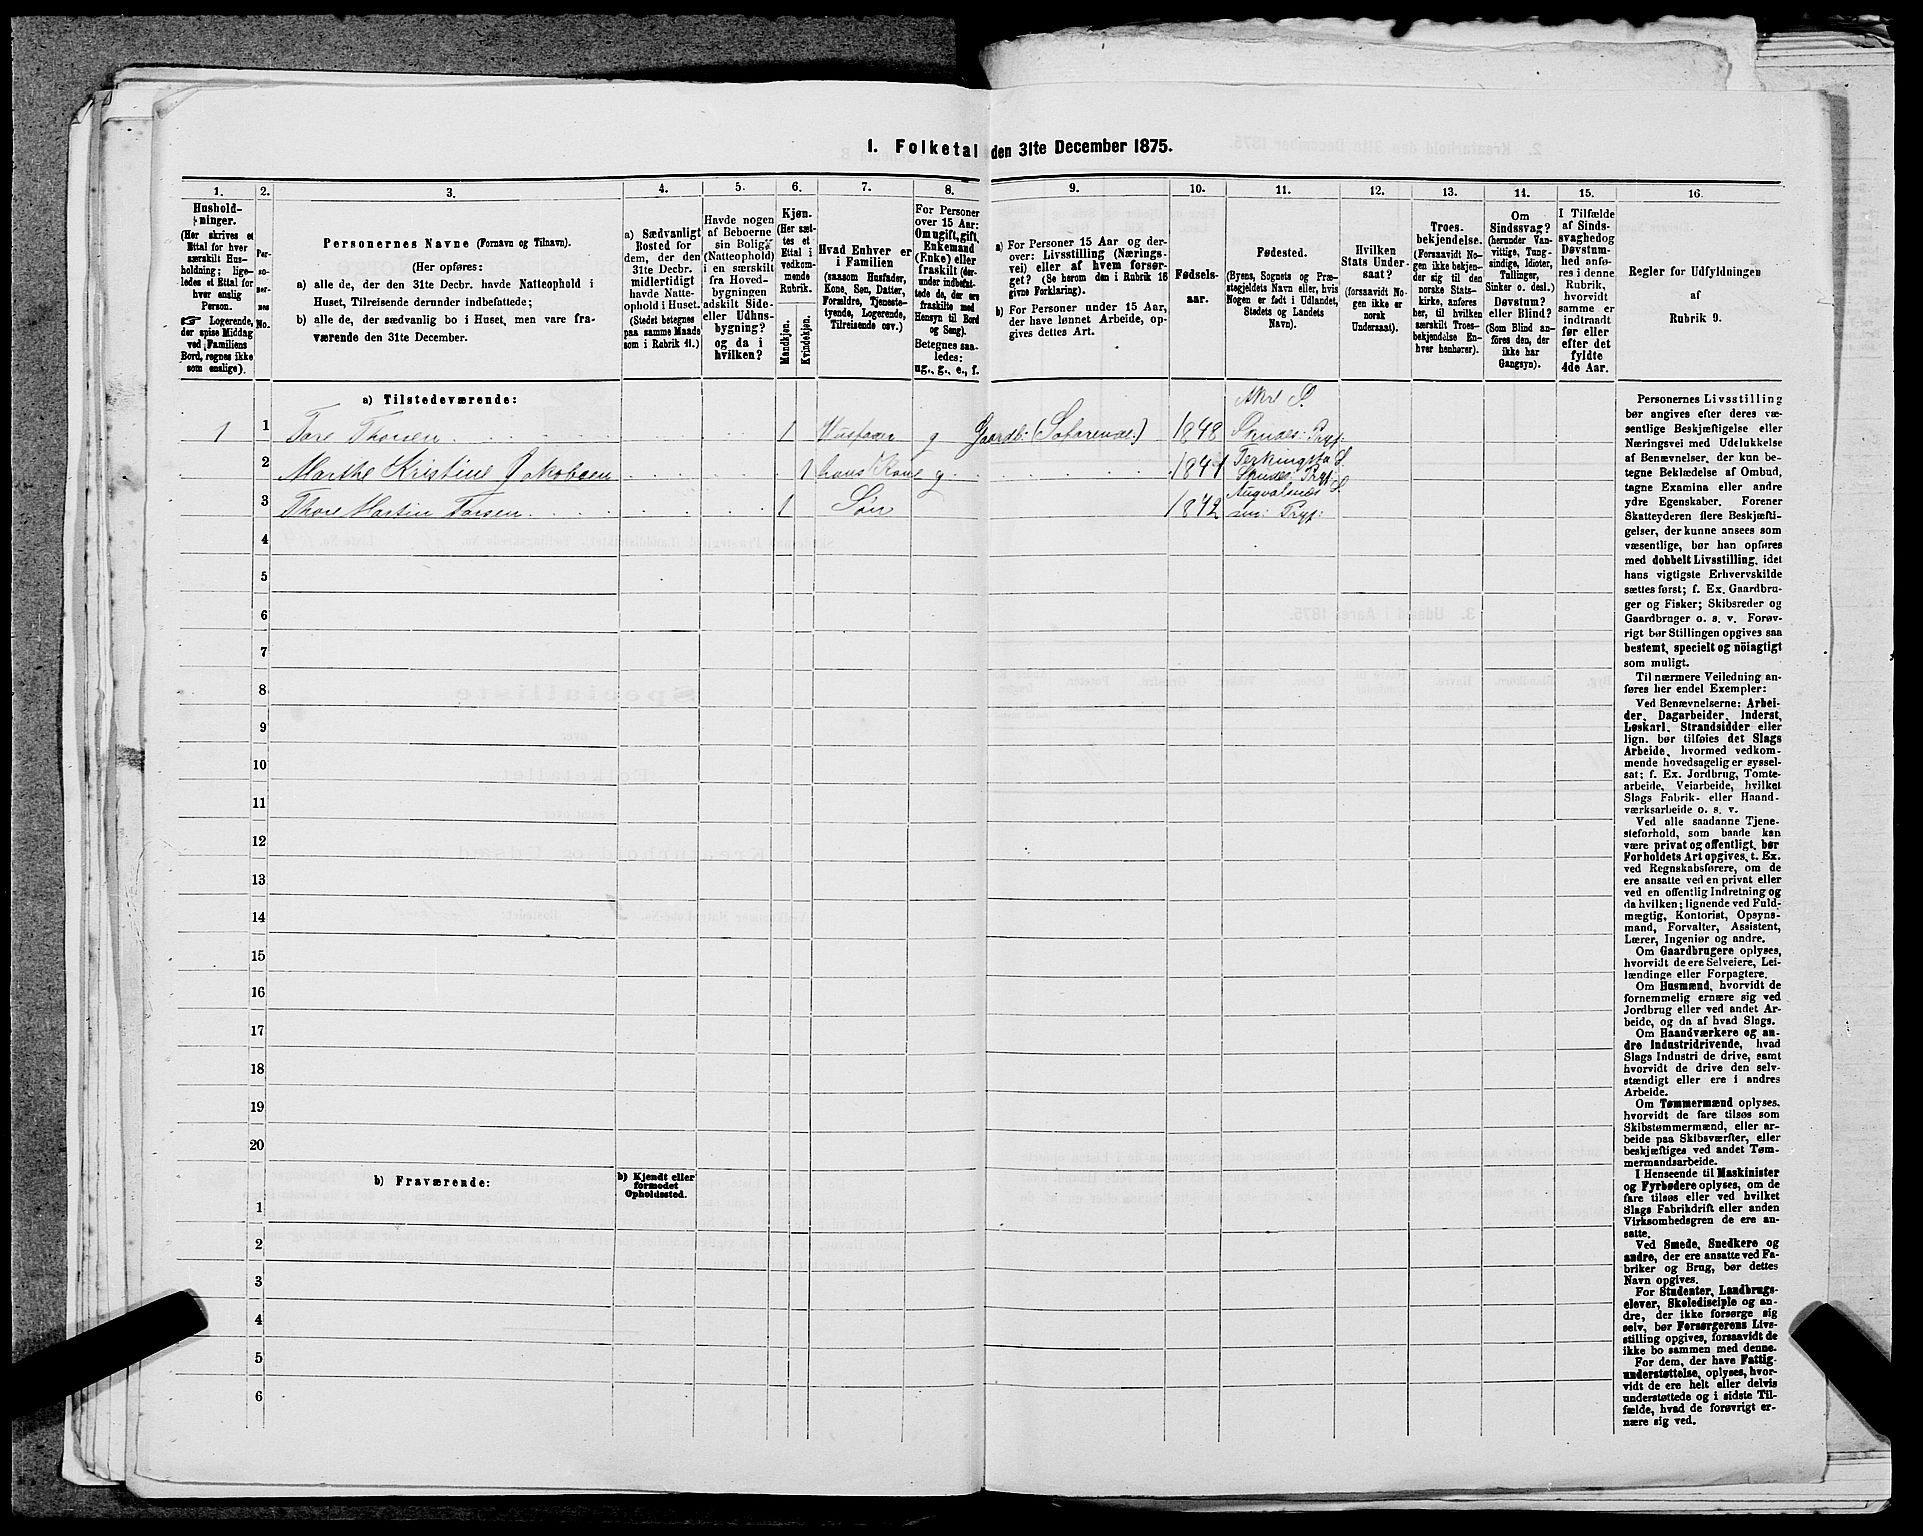 1. Folketal den 31te December 1875.
1. 2. 3. 4. 5. 6. 7. 8. 9. 10. 11. 12. 13. 14. 15. 16.
Hushold-
ninger.
(Her skrives et
Ettal for hver
særskilt Hus-
holdning; lige-
ledes et Ettal for
hver enslig
Person.
☞ Logerende,
der spise Middag
ved Familiens
Bord, regnes ikke
som enslige).
Per-
so-
ner-
nes
No.
Personernes Navne (Fornavn og Tilnavn).
(Her opføres:
a) alle de, der den 31te Decbr. havde Natteophold i
Huset, Tilreisende derunder indbefattede;
b) alle de, der sædvanlig bo i Huset, men vare fra-
værende den 31te December.
a) Sædvanligt
Bosted for
dem, der den
31te Decbr.
midlertidigt
havde Natte-
ophold i Huset.
(Stedet betegnes
paa samme Maade
som i Rubrik 11.)
Havde nogen
af Beboerne
sin Bolig
(Natteophold)
i en særskilt
fra Hoved-
bygningen
adskilt Side-
eller Udhus-
bygning?
og da i
hvilken?
Kjøn.
(Her sæt-
tes et
Ettal i
vedkom-
mende
Rubrik.
Mandkjøn.
Kvindekjøn.
Hvad Enhver er
i Familien
(saasom Husfader,
Kone, Søn, Datter,
Forældre, Tjeneste-
tyende, Logerende,
Tilreisende osv.)
For Personer
over 15 Aar:
Om ugift, gift,
Enkemand
(Enke) eller
fraskilt (der-
under indbefat-
tede de, der ere
fraskilte med
Hensyn til Bord
og Seng).
Betegnes saa-
ledes:
ug., g., e., f.
a) For Personer 15 Aar og der-
over: Livsstilling (Nærings-
vei) eller af hvem forsør-
get? (Se herom den i Rubrik 16
givne Forklaring).
b) For Personer under 15 Aar,
der have lønnet Arbeide, op-
gives dettes Art.
Fødsels-
aar.
Fødested.
(Byens, Sognets og Præ-
stegjeldets Navn eller, hvis
Nogen er født i Udlandet,
Stedets og Landets
Navn).
Hvilken
Stats Under-
saat?
(forsaavidt No-
gen ikke er
norsk
Undersaat).
Troes-
bekjendelse.
(Forsaavidt No-
gen ikke bekjen-
der sig til den
norske Stats-
kirke, anføres
her, til hvilken
særskilt Troes-
bekjendelse En-
hver henhører).
Om
Sindssvag?
(herunder Van-
vittige, Tung-
sindige, Idioter,
Tullinger,
Sinker o. desl.)
Døvstum?
eller Blind?
(Som Blind an-
føres den, der
ikke har
Gangsyn).
I Tilfælde
af Sinds-
svaghed og
Døvstum-
hed anfø-
res i denne
Rubrik,
hvorvidt
samme er
indtraadt
før eller
efter det
fyldte
4de Aar.
Regler for Udfyldningen
af
Rubrik 9.
a) Tilstedeværende:
Akre S.
1 1 Tore Thorsen 1 Husfader g Gaardb: 1848 Skudes: Prgj:
2 Marthe Kristine Jakobsen 1 hans Kone g Ferkingstad S.
Skudes: Prgj:
3 Thore Martin Torsen 1 Søn 1872 Augvalsnes S.
Prgj:
4
5
6
7
8
9
10
11
12
13
14
15
16
17
18
19
20
b) Fraværende:
b) Kjendt eller
formodet
Opholdssted.
1
2
3
4
5
6
Personernes Livsstilling
bør angives efter deres væ-
sentlige Beskjæftigelse eller
Næringsvei med Udelukkelse
af Benævnelser, der kun be-
tegne Beklædelse af Ombud,
tagne Examina eller andre
ydre Egenskaber. Forener
Skatteyderen flere Beskjæfti-
gelser, der kunne ansees som
væsentlige, bør han opføres
med dobbelt Livsstilling, idet
hans vigtigste Erhvervskilde
sættes først; f. Ex. Gaardbru-
ger og Fisker; Skibsreder og
Gaardbruger o. s. v. Forøv-
rigt bør Stillingen opgives saa
bestemt, specielt og nöiagtigt
som muligt.
Til nærmere Veiledning an-
føres her endel Exempler:
Ved Benævnelserne: Arbei-
der, Dagarbeider, Inderst,
Løskarl, Strandsidder eller
lign. bør tilføies det Slags
Arbeide, hvormed vedkom-
mende hovedsagelig er syssel-
sat; f. Ex. Jordbrug, Tomte-
arbeide, Veiarbeide, hvilket
Slags Fabrik- eller Haand-
værksarbeide o. s. v.
Ved alle saadanne Tjene-
steforhold, som baade kan
være privat og offentligt, bør
Forholdets Art opgives, t. Ex.
ved Regnskabsførere, om de
ere ansatte ved en privat eller
ved en offentlig Indretning og
da hvilken; lignende ved Fuld-
mægtig, Kontorist, Opsyns-
mand, Forvalter, Assistent,
Lærer, Ingeniør og andre.
Om Gaardbrugere oplyses,
hvorvidt de ere Selveiere, Lei-
lændinge eller Forpagtere.
Om Husmænd, hvorvidt de
fornemmelig ernære sig ved
Jordbrug eller ved andet Ar-
beide, og da af hvad Slags.
Om Haandværkere og an-
dre Industridrivende, hvad
Slags Industri de drive, samt
hvorvidt de drive den selv-
stændigt eller ere i andres
Arbeide.
Om Tømmermænd oplyses,
hvorvidt de fare tilsøs som
Skibstømmermænd, eller ar-
beide paa Skibsværfter, eller
beskjæftiges ved andet Tøm-
mermandsarbeide.
I Henseende til Maskinister
og Fyrbødere oplyses, om de
fare tilsøs eller ved hvilket
Slags Fabrikdrift eller anden
Virksomhedsgren de ere an-
satte.
Ved Smede, Snedkere og
andre, der ere ansatte ved Fa-
briker og Brug, bør dettes
Navn opgives.
For Studenter, Landbrugs-
elever, Skoledisciple og an-
dre, der ikke forsørge sig
selv, bør Forsørgerens Livs-
stilling opgives, forsaavidt de
ikke bo sammen med denne.
For dem, der have Fattig-
understøttelse, oplyses, hvor-
vidt de ere helt eller delvis
understøttede og i sidste Til-
fælde, hvad de forøvrigt er-
nære sig ved.